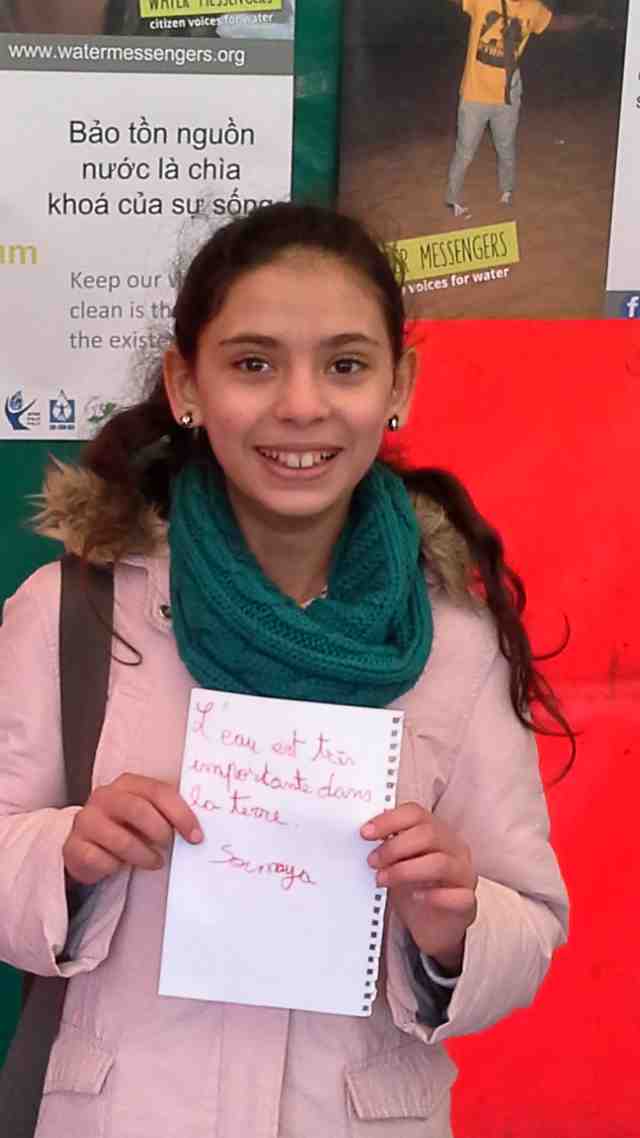 WATER MESSENGERS
citizen voices for water
www.watermessengers.org
Bảo tồn nguồn
nước là chìa
khoá của sự sống
Keep our
clean is
the existe
MESSENGERS
voices for water
f
L'eau est très
importante dans
la terre.
Soumaya